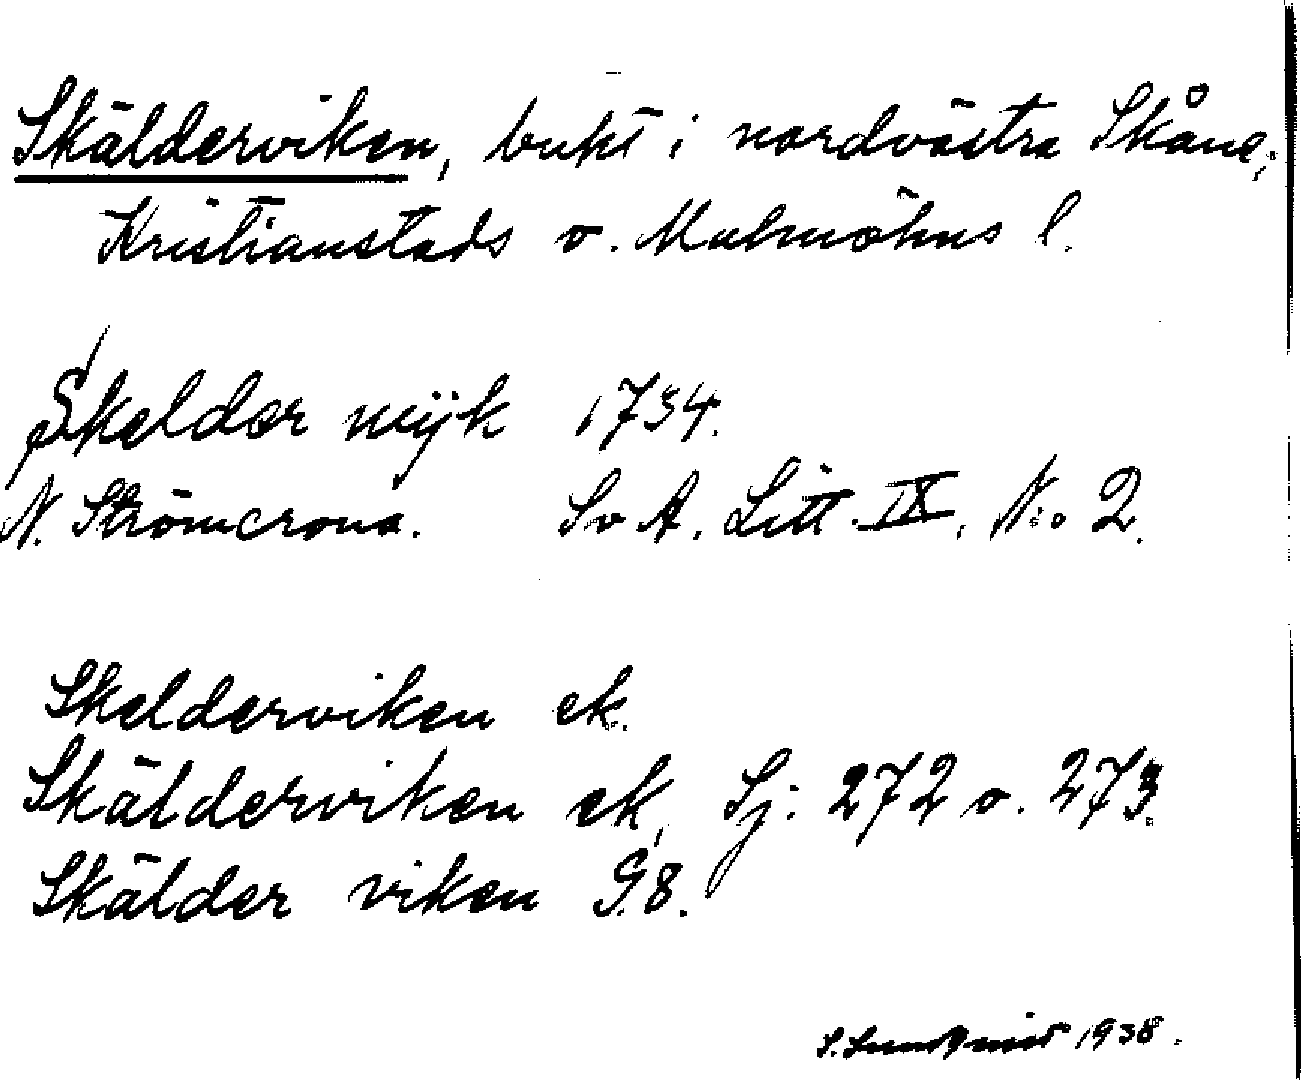 Skälderviken, bukt i nordvästra Skåne,
Kristianstads o. Malmöhus l.
Skelder wijk 1734.
N. Strömcrona. Sv A. Litt. IX, N:o 2.
Skelderviken ek.
Skälderviken ek, Sj. 272 o. 273.
Skälder viken G.8.
S. Lundqvist 1938.